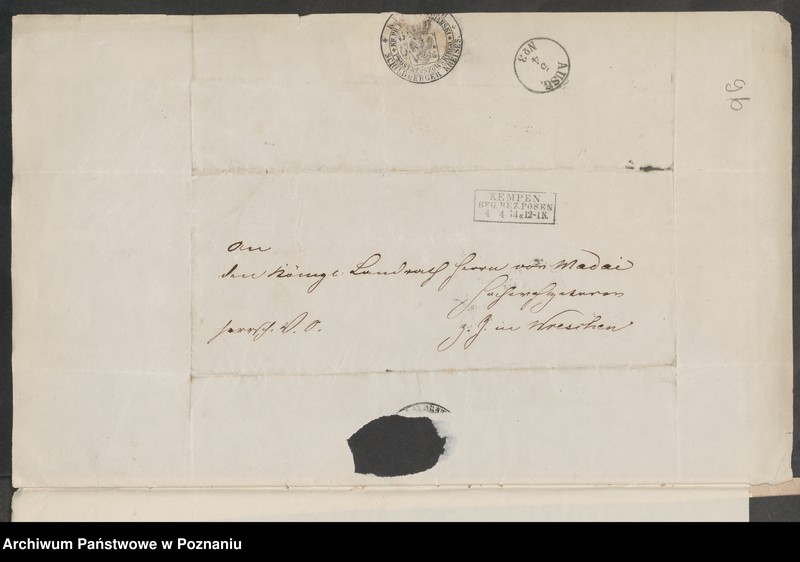 SCHILDBERGER KREISES
AUSG.
5
4
No 3
96
KEMPEN
REG. BEZ. POSEN
4 4 12-1 N.
An
den Königl. Landrath Herrn von Madai
Hochwohlgeboren
z. Z. in Wreschen
herrsch. D. S.
Archiwum Państwowe w Poznaniu